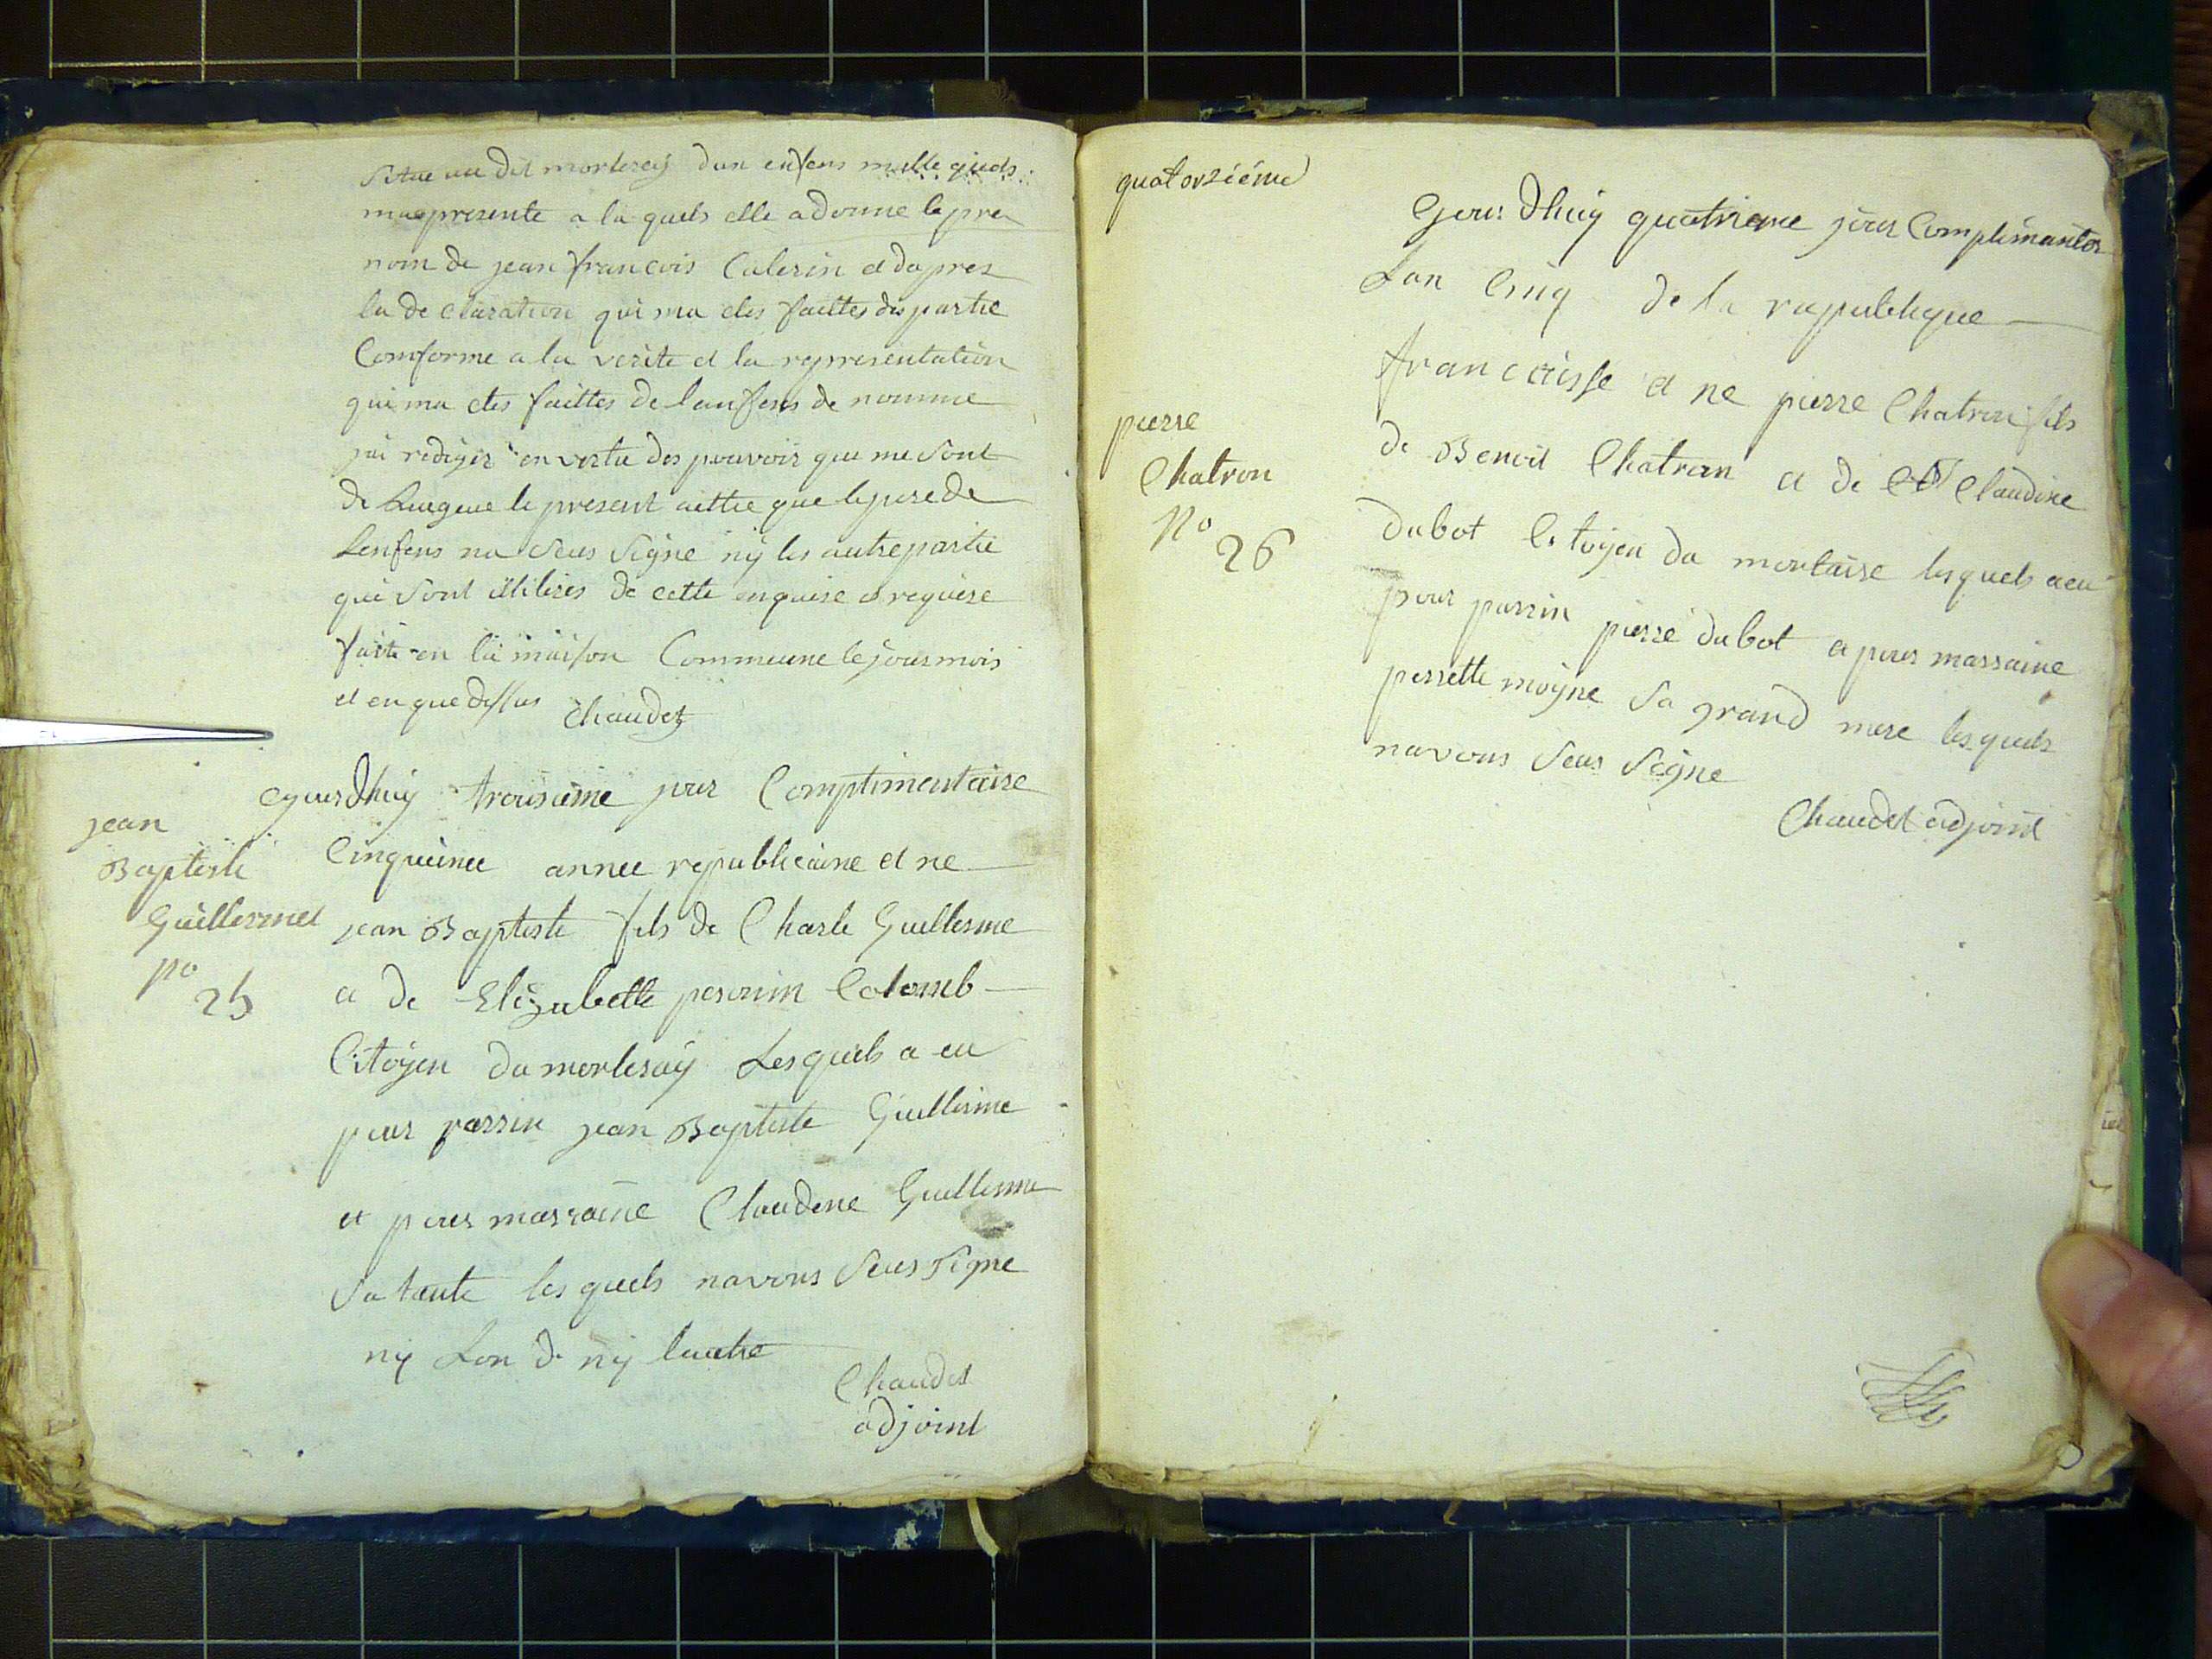 Situe au dit morteray dun enfens malle quels
ma presente a la quels elle a donne le pre
nom de jean francois Calerin et dapres
la de claration qui ma etes faittes des partie
Comforme a la verite et la representation
qui ma etes faittes de lenfens de nomme
jai rediger en vertu des pouvoir que me sont
de le present acttre que le pere de
Lenfens na Sous Signe ny les autre partie
qui sont illiteres de cette enquise et requise
faite en la maison Commeune le jour mois
et en que dessus Chaudet
ejourdhuy troisieme jour Complimentaire
jean
Baptiste
Guillermet
no
25
Cinquieme annee republicaine et ne
jean Baptiste fils de Charle Guillerme
a de Elizabette Colomb
Citoyen du morteray Lesquels a eu
pour parrin jean Baptiste Guillerme
et pour marraine Claudine Guillerme
Sa tante les quels navons Sous Signe
ny Lon d. ny lautre
Chaudet
adjoint
quatorziéme
Gour Dhuy quatrieme jour Complimanter
Lan Cinq de la rapublique
francaisse et ne pierre Chatron fils
pierre
Chatron
No
26
de Benoit Chatron et de Claudine
Dubot Citoyen du mortaire lesquels a eu
pour parrin pierre Dubot a pour marraine
perrette moyne Sa grand mere lesquels
navons Sous Signe
Chaudet adjoint